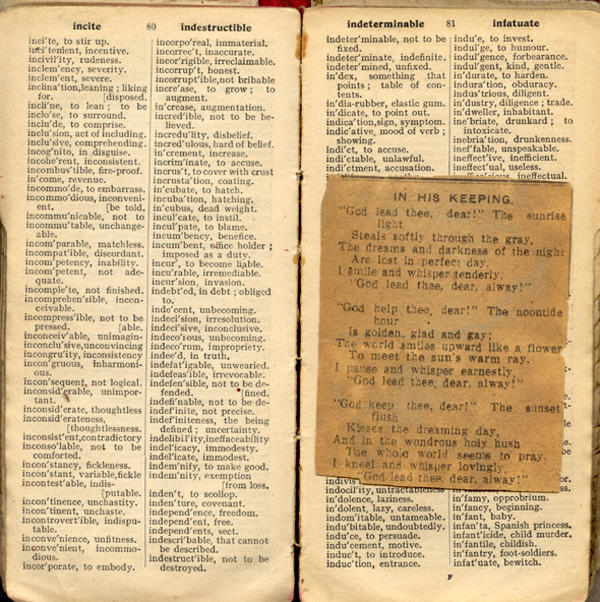 incite 80 indestructible
inci'te, to stir up.
incitement, incentive.
incivil'ity, rudeness.
inclem'ency, severity.
inclem'ent, severe.
inclina'tion,leaning ; liking
for. [disposed.
incli'ne, to lean ; to be
inclo'se, to surround.
inclu'de, to comprise.
inclu'sion, act of including.
inclu'sive, comprehending.
incog'nito, in disguise.
incohe'rent, inconsistent.
incombus'tible, fire-proof.
in'come, revenue.
incommo'de, to embarrass.
incommo'dious, inconveni-
ent. [be told.
incommu'nicable, not to
incommu'table, unchange-
able.
incom'parable, matchless.
incompat'ible, discordant.
incom'petency, inability.
incom'petent, not ade-
quate.
incomple'te, not finished.
incomprehen'sible, incon-
ceivable.
incompress'ible, not to be
pressed. [able.
inconceiv'able, unimagin-
inconclu'sive,unconvincing
incongru'ity, inconsistency
incon'gruous, inharmoni-
ous.
incon'sequent, not logical.
inconsid'erable, unimpor-
tant.
inconsid'erate, thoughtless
inconsid'erateness,
[thoughtlessness.
inconsist'ent,contradictory
inconso'lable, not to be
comforted.
incon'stancy, fickleness.
incon'stant, variable,fickle
incontest'able, indis-
[putable.
incon'tinence, unchastity.
incon'tinent, unchaste.
incontrovert'ible, indispu-
table.
inconve'nience, unfitness.
inconve'nient, incommo-
dious.
incor'porate, to embody.
incorpo'real, immaterial.
incorrec't, inaccurate.
incor'rigible, irreclaimable.
incorrup't, honest.
incorrupt'ible,not bribable
incre'ase, to grow ; to
augment.
in'crease, augmentation.
incred'ible, not to be be-
lieved.
incredu'lity, disbelief.
incred'ulous, hard of belief.
in'crement, increase.
incrim'inate, to accuse.
incrus't, to cover with crust
incrusta'tion, coating.
in'cubate, to hatch.
incuba'tion, hatching.
in'cubus, dead weight.
incul'cate, to instil.
incul'pate, to blame.
incum'bency, benefice.
incum'bent, office holder ;
imposed as a duty.
incur', to become liable.
incu'rable, irremediable.
incur'sion, invasion.
indebt'ed, in debt ; obliged
to.
inde'cent, unbecoming.
indeci'sion, irresolution.
indeci'sive, inconclusive.
indeco'rous, unbecoming.
indeco'rum, impropriety.
indee'd, in truth.
indefat'igable, unwearied.
indefeas'ible, irrevocable.
indefen'sible, not to be de-
fended. [fined.
indefi'nable, not to be de-
indef'inite, not precise.
indef'initeness, the being
defined ; uncertainty.
indelibil'ity,ineffaceability
indel'icacy, immodesty.
indel'icate, immodest.
indem'nify, to make good.
indem'nity, exemption
[from loss.
inden't, to scollop.
inden'ture, covenant.
indepen'dence, freedom.
indepen'dent, free.
indepen'dents, sect.
indescri'bable, that cannot
be described.
indestruct'ible, not to be
destroyed.
indeterminable 81 infatuate
indeter'minable, not to be
fixed.
indeter'minate, indefinite.
indeter'mined, unfixed.
in'dex, something that
points ; table of con-
tents.
in'dia-rubber, elastic gum.
in'dicate, to point out.
indica'tion,sign, symptom.
indic'ative, mood of verb ;
showing.
indi'ct, to accuse.
indi'ctable, unlawful.
indi'ctment, accusation.
indu'e, to invest.
indul'ge, to humour.
indul'gence, forbearance.
indul'gent, kind, gentle.
in'durate, to harden.
indura'tion, obduracy.
indus'trious, diligent.
in'dustry, diligence ; trade.
in'dweller, inhabitant.
ine'briate, drunkard ; to
intoxicate.
inebria'tion, drunkenness.
inef'fable, unspeakable.
ineffect'ive, inefficient.
ineffect'ual, useless.
ineffectual.
IN HIS KEEPING.
"God lead thee, dear!" The sunrise
light
Steals softly through the gray,
The dreams and darkness of the night
Are lost in perfect day.
I smile and whisper tenderly,
"God lead thee, dear, alway!"
"God help thee, dear!" The noontide
hour
Is golden, glad and gay;
The world smiles upward like a flower
To meet the sun's warm ray.
I pause and whisper earnestly,
"God lead thee, dear, alway!"
"God keep thee, dear!" The sunset
flush
Kisses the dreaming day,
And in the wondrous holy hush
The whole world seems to pray.
I kneel and whisper lovingly,
"God lead thee, dear, alway!"
indocil'ity, untractableness
in'dolence, laziness.
in'dolent, lazy, careless.
indom'itable, untameable.
indu'bitable, undoubtedly.
indu'ce, to persuade.
indu'cement, motive.
induc't, to introduce.
induc'tion, entrance.
in'famy, opprobrium.
in'fancy, beginning.
in'fant, baby.
infan'ta, Spanish princess.
infant'icide, child murder.
in'fantile, childish.
in'fantry, foot-soldiers.
infat'uate, bewitch.
F